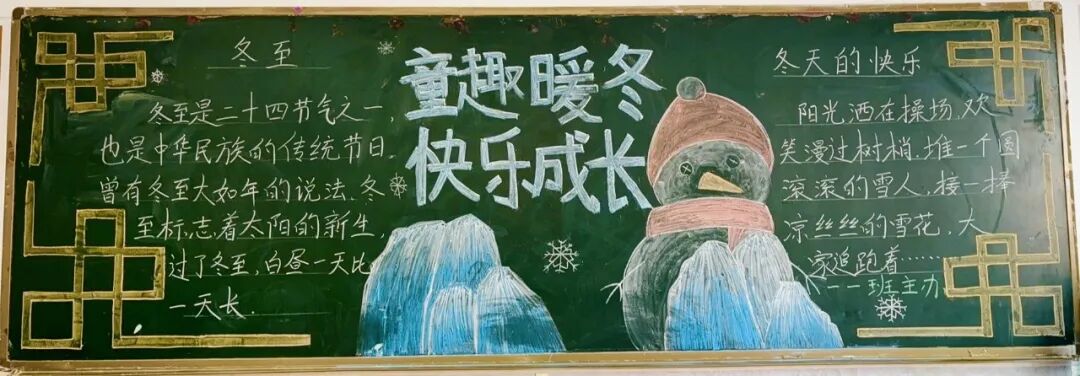 冬至
冬至是二十四节气之一,
也是中华民族的传统节日.
曾有冬至大如年的说法.冬
至标志着太阳的新生,
过了冬至,白昼一天比
一天长.
童趣暖冬
快乐成长
冬天的快乐
阳光洒在操场,欢
笑漫过树梢.堆一个圆
滚滚的雪人,接一捧
凉丝丝的雪花,大
家追跑着……
一一班主办